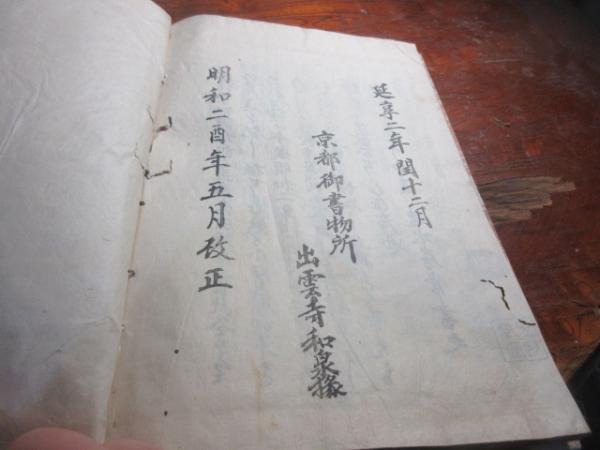 延享二年閏十二月
京都御書物所
出雲寺和泉掾
明和二酉年五月改正